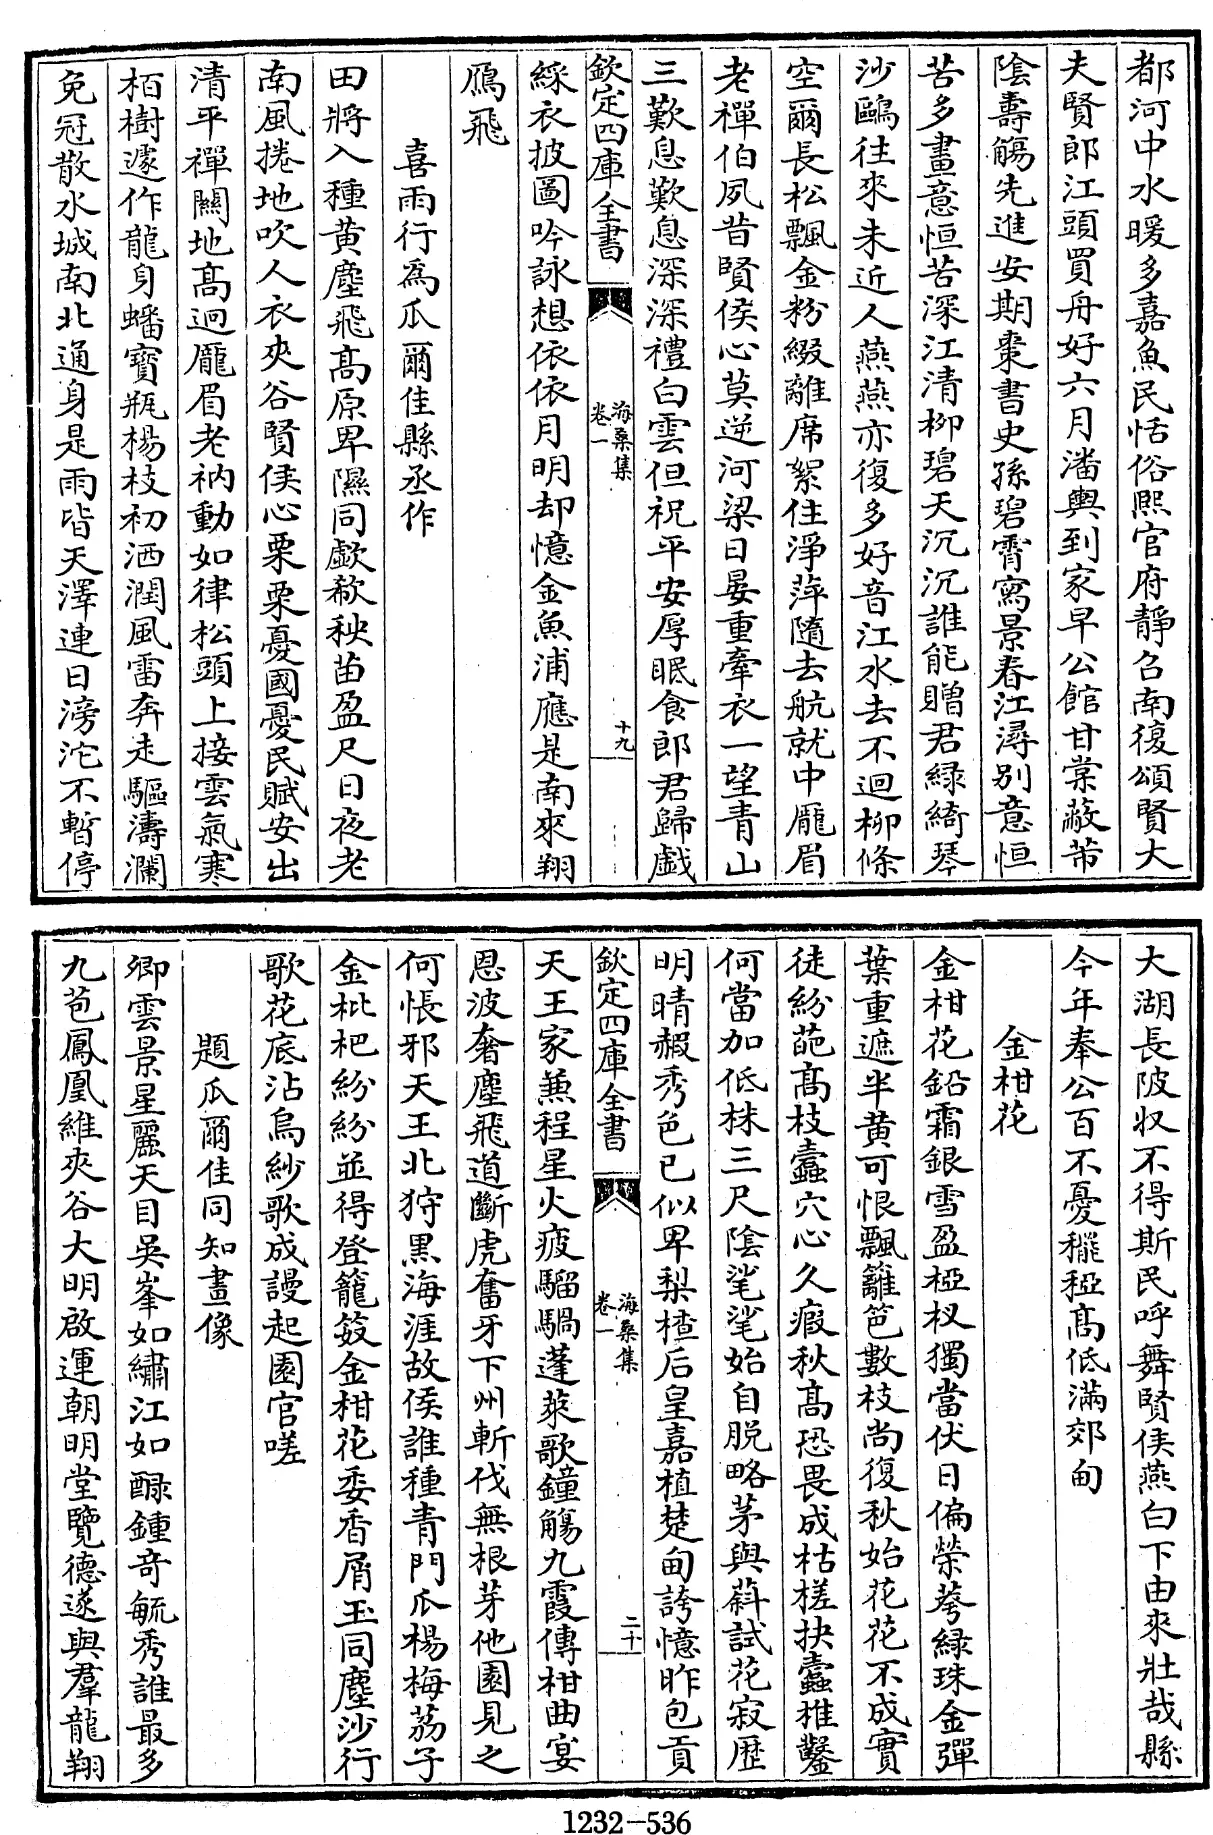 都河中水暖多嘉魚民恬俗熙官府靜召南復頌賢大
夫賢郎江頭買舟好六月潘輿到家早公館甘棠蔽芾
陰壽觴先進安期棗書史孫碧霄寫景春江潯別意恒
苦多畫意恒苦深江清柳碧天沉沉誰能贈君緑綺琴
沙鷗往來未近人燕燕亦復多好音江水去不迴柳條
空爾長松飄金粉綴離席絮住淨萍隨去航就中厖眉
老禪伯夙昔賢侯心莫逆河梁日晏重牽衣一望青山
三歎息歎息深深禮白雲但祝平安厚眠食郎君歸戯
欽定四庫全書
海桑集
卷一
十九
綵衣披圖吟詠想依依月明却憶金魚浦應是南來翔
鴈飛
喜雨行為瓜爾佳縣丞作
田將入種黄塵飛髙原卑隰同歔欷秧苗盈尺日夜老
南風捲地吹人衣夾谷賢侯心栗栗憂國憂民賦安出
清平禪關地髙迥厖眉老衲動如律松頭上接雲氣寒
栢樹遽作龍身蟠寶瓶楊枝初洒潤風雷奔走驅濤瀾
免冠散水城南北通身是雨皆天澤連日滂沱不暫停
大湖長陂収不得斯民呼舞賢侯燕白下由來壯哉縣
今年奉公百不憂穲稏髙低滿郊甸
金柑花
金柑花鉛霜銀雪盈椏杈獨當伏日偏榮蕚緑珠金彈
葉重遮半黄可恨飄籬笆數枝尚復秋始花花不成實
徒紛葩髙枝蠧穴心久瘕秋髙恐畏成枯槎抉蠧椎鑿
何當加低株三尺陰毟毟始自脱略茅與蔛試花寂歴
明晴赮秀色已似卑梨楂后皇嘉植楚甸誇憶昨包貢
欽定四庫全書
海桑集
卷一
二十
天王家兼程星火疲騮騧蓬萊歌鐘觴九霞傳柑曲宴
恩波奢塵飛道斷虎奮牙下州斬伐無根芽他園見之
何悵邪天王北狩黒海涯故侯誰種青門瓜楊梅荔子
金枇杷紛紛並得登籠笯金柑花委香屑玉同塵沙行
歌花底沾烏紗歌成謾起園官嗟
題瓜爾佳同知畫像
卿雲景星麗天目吳峯如繡江如醁鍾奇毓秀誰最多
九苞鳳凰維夾谷大明啟運朝明堂覽德遂與羣龍翔
1232-536